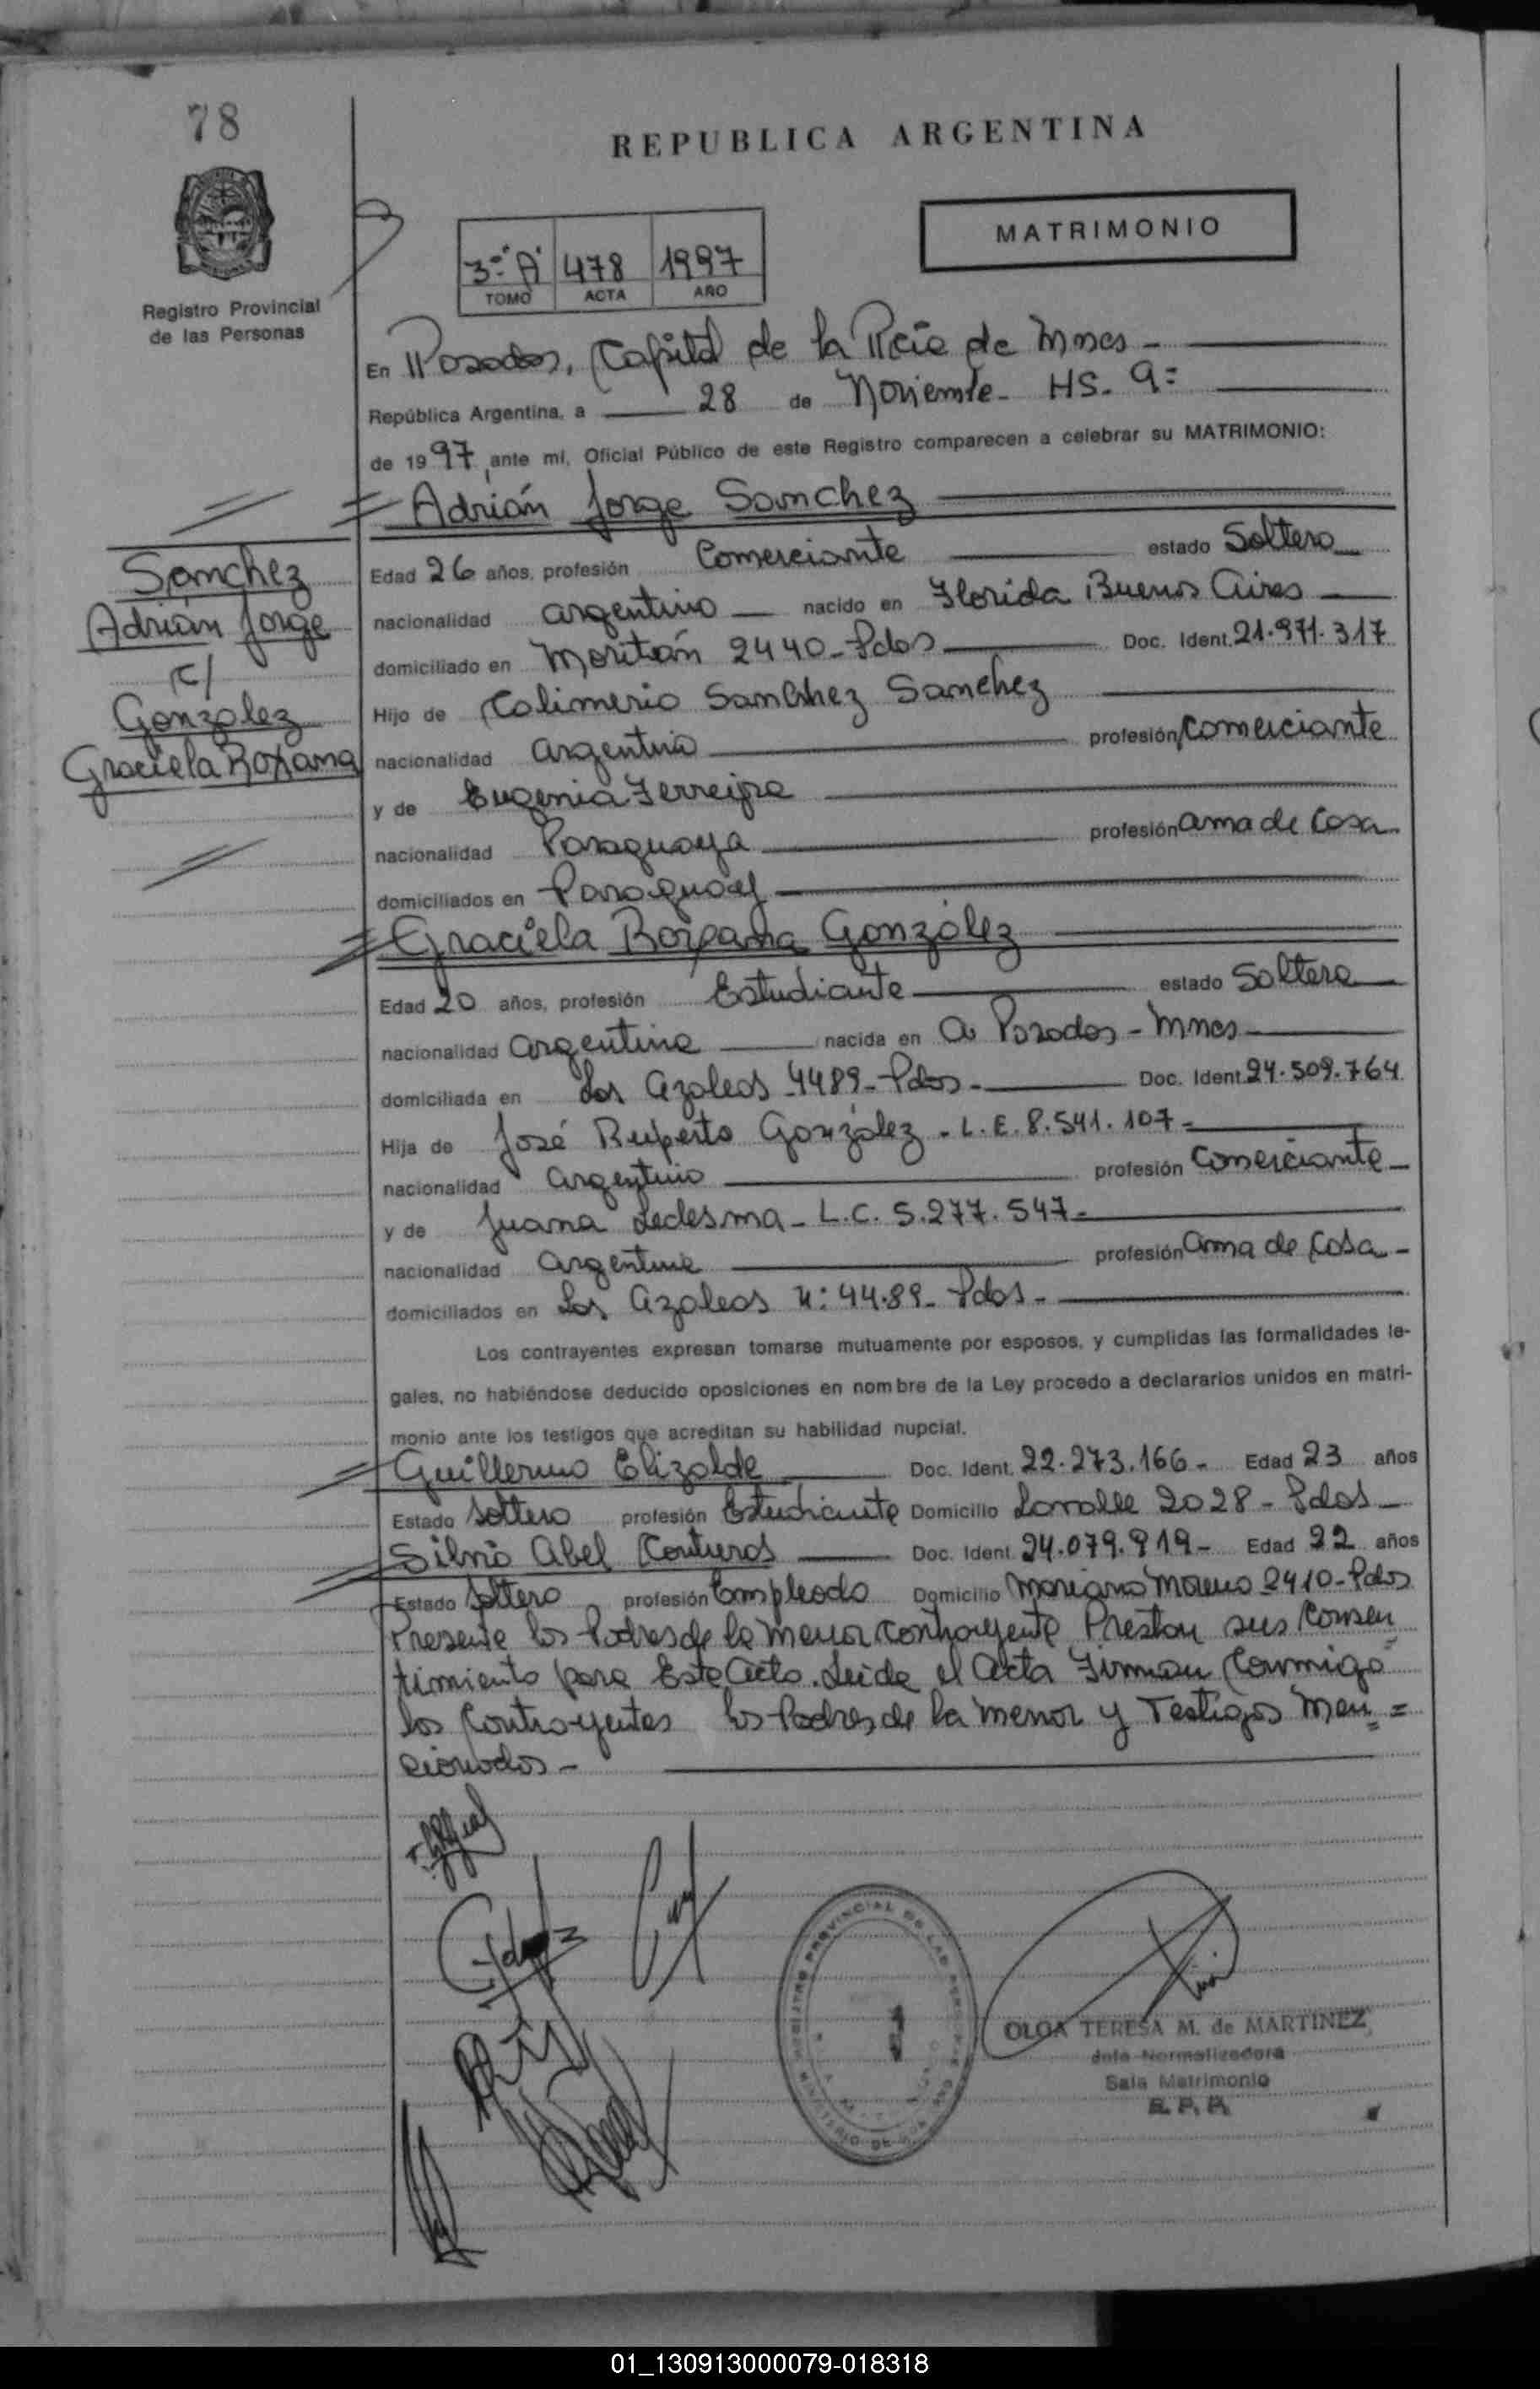 78
REPUBLICA ARGENTINA
MATRIMONIO
3º "A" 478 1997
TOMO ACTA AÑO
Registro Provincial
de las Personas
En Posadas, Capital de la Pcia de Mnes -
República Argentina, a 28 de Noviembre - HS. 9=
de 1997, ante mí, Oficial Público de este Registro comparecen a celebrar su MATRIMONIO:
Adrián Jorge Sanchez
Sanchez
Adrián Jorge
c/
Gonzalez
Graciela Roxana
Edad 26 años, profesión Comerciante estado Soltero
nacionalidad argentino nacido en Florida Buenos Aires
domiciliado en Moritán 2440 - Pdas Doc. Ident. 21.971.317
Hijo de Calimerio Sanchez Sanchez
nacionalidad argentino profesión Comerciante
y de Eugenia Ferreira
nacionalidad Paraguaya profesión ama de Casa
domiciliados en Paraguay
Graciela Roxana González
Edad 20 años, profesión Estudiante estado Soltera
nacionalidad argentina nacida en a Posadas - Mnes
domiciliada en Las Azaleas 4489 - Pdas - Doc. Ident. 24.509.764
Hija de José Ruperto González - L.E. 8.541.107 -
nacionalidad argentino profesión Comerciante
y de Juana Ledesma - L.C. 5.277.547 -
nacionalidad argentina profesión ama de Casa -
domiciliados en Las Azaleas N: 44.89 - Pdas -
Los contrayentes expresan tomarse mutuamente por esposos, y cumplidas las formalidades le-
gales, no habiéndose deducido oposiciones en nombre de la Ley procedo a declararlos unidos en matri-
monio ante los testigos que acreditan su habilidad nupcial.
Guillermo Elizalde Doc. Ident. 22.273.166 - Edad 23 años
Estado Soltero profesión Estudiante Domicilio Larralde 2028 - Pdas -
Silvio Abel Contreras Doc. Ident. 24.079.919 - Edad 22 años
Estado Soltero profesión Empleado Domicilio Mariano Moreno 2410 - Pdas
Presente los Padres de la menor contrayente Prestan sus Consen
timiento para Este Acto. Leida el Acta Firman Conmigo
los Contrayentes los Padres de la menor y Testigos Men =
cionados -
REGISTRO PROVINCIAL DE LAS PERSONAS
1
OLGA TERESA M. de MARTINEZ
Jefa Normalizadora
Sala Matrimonio
R. P. P.
01_130913000079-018318